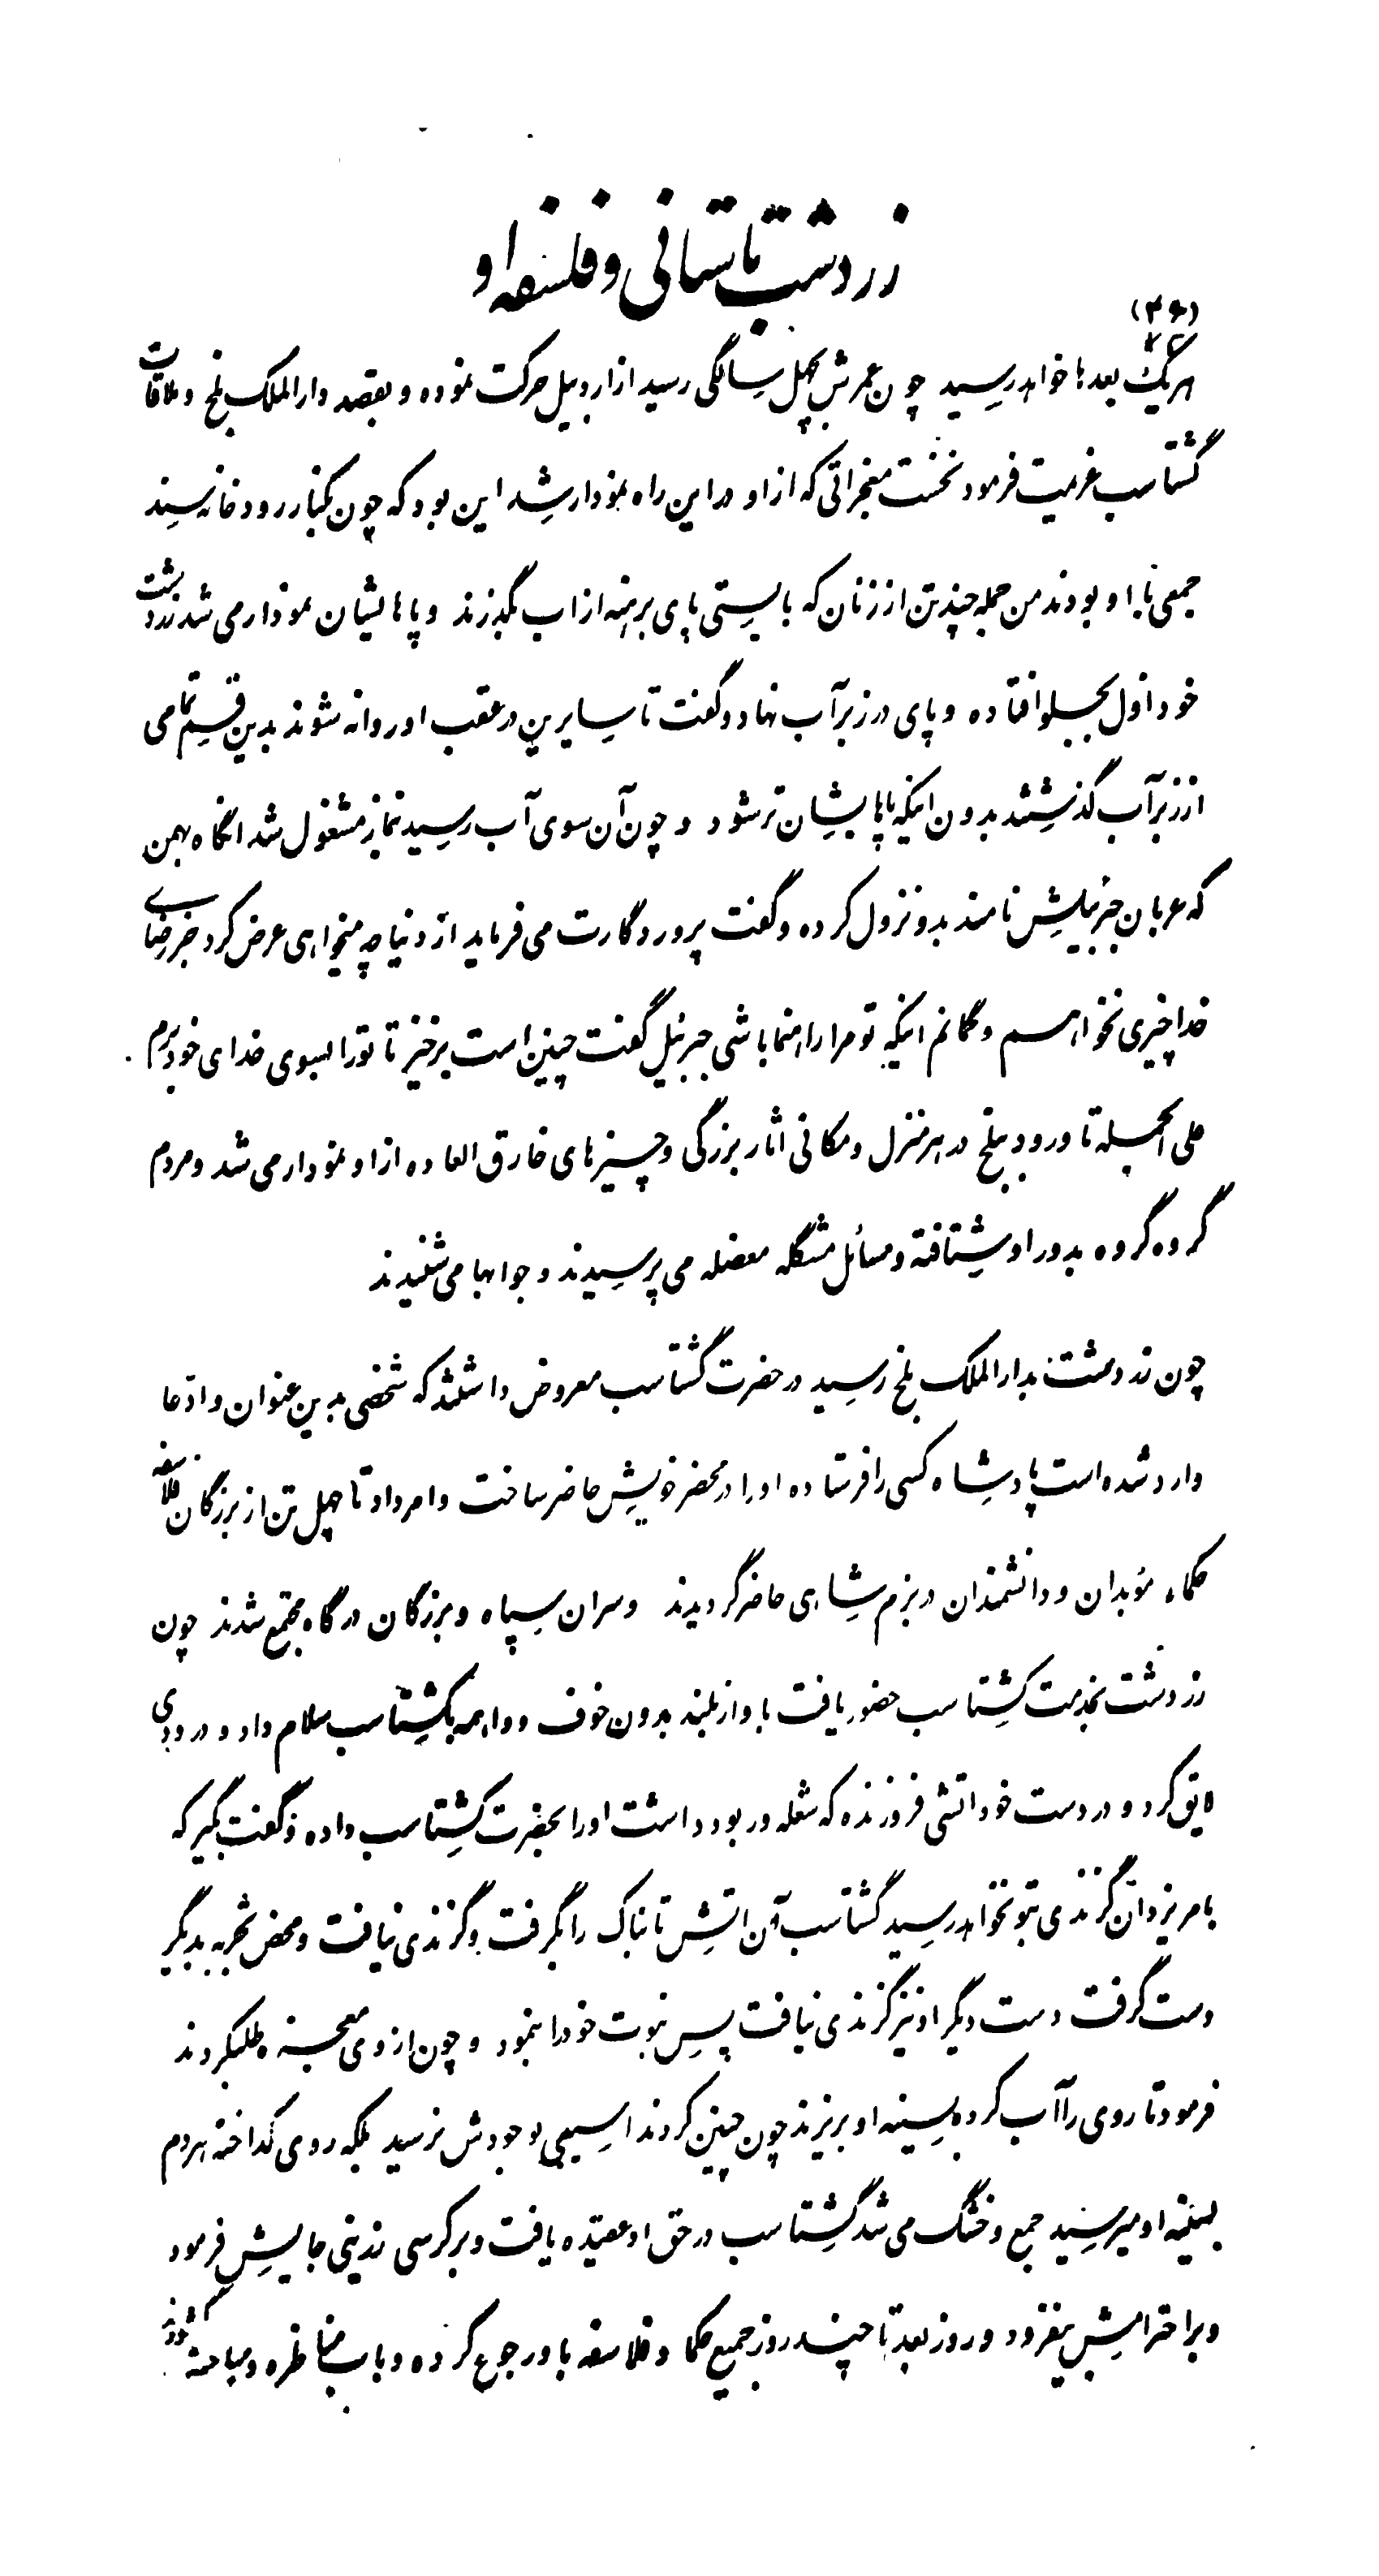 زردشت باستانی و فلسفه او
(۳۶)
هریک بعدها خواهد رسید چون عمرش بچهل سالگی رسید از اردبیل حرکت نموده و بقصد دارالملک بلخ و ملاقات
گشتاسب عزیمت فرمود نخست معجزاتی که از او در این راه نمودار شد این بود که چون بکنار رودخانه رسیدند
جمعی با او بودند من جمله چند تن از زنان که بایستی پای برهنه از اب بگذرند و پاهایشان نمودار می شد زردشت
خود اول بجلو افتاده و پای در زیر آب نهاد و گفت تا سایرین در عقب او روانه شوند بدین قسم تمامی
از زیر آب گذشتند بدون اینکه پاپایشان تر شود و چون آن سوی آب رسید بنماز مشغول شد انگاه بهمن
که عربان جبرئیلش نامند بدو نزول کرده و گفت پروردگارت می فرماید از دنیا چه میخواهی عرض کرد جز رضای
خدا چیزی نخواهم و گمانم اینکه تو مرا راهنما باشی جبرئیل گفت چنین است برخیز تا تو را بسوی خدای خود برم
علی الجمله تا ورود ببلخ در هر منزل و مکانی اثار بزرگی و چیزهای خارق العاده از او نمودار می شد و مردم
گروه گروه بدور او شتافته و مسائل مشگله معضله می پرسیدند و جوابها می شنیدند
چون زردشت بدارالملک بلخ رسید در حضرت گشتاسب معروض داشتند که شخصی بدین عنوان و ادّعا
وارد شده است پادشاه کسی را فرستاده او را در محضر خویش حاضر ساخت و امر داد تا چهل تن از بزرگان فلاسفه
حکماء مؤبدان و دانشمندان در بزم شاهی حاضر گردیدند و سران سپاه و بزرگان درگاه مجتمع شدند چون
زردشت بخدمت گشتاسب حضور یافت باواز بلند بدون خوف و واهمه بگشتاسب سلام داد و درودی
لایق کرد و در دست خود اتشی فروزنده که شعله ور بود داشت او را بحضرت گشتاسب داده و گفت بگیر که
بامر یزدان گزندی بتو نخواهد رسید گشتاسب آن اتش تابناک را بگرفت و گزندی نیافت و محض تجربه بدیگر
دست گرفت دست دیگر او نیز گزندی نیافت پس نبوت خود را بنمود و چون از وی معجزه طلب کردند
فرمود تا روی را آب کرده بسینه او بریزند چون چنین کردند اسیبی بوجودش نرسید بلکه روی گداخته هر دم
بسینه او میرسید جمع و خشگ می شد گشتاسب در حق او عقیده یافت و بر کرسی زرینی جایش فرمود
و براحترامش بیفزود و روز بعد تا چند روز جمیع حکما و فلاسفه باو رجوع کرده و باب مناظره و مباحثه گشودند